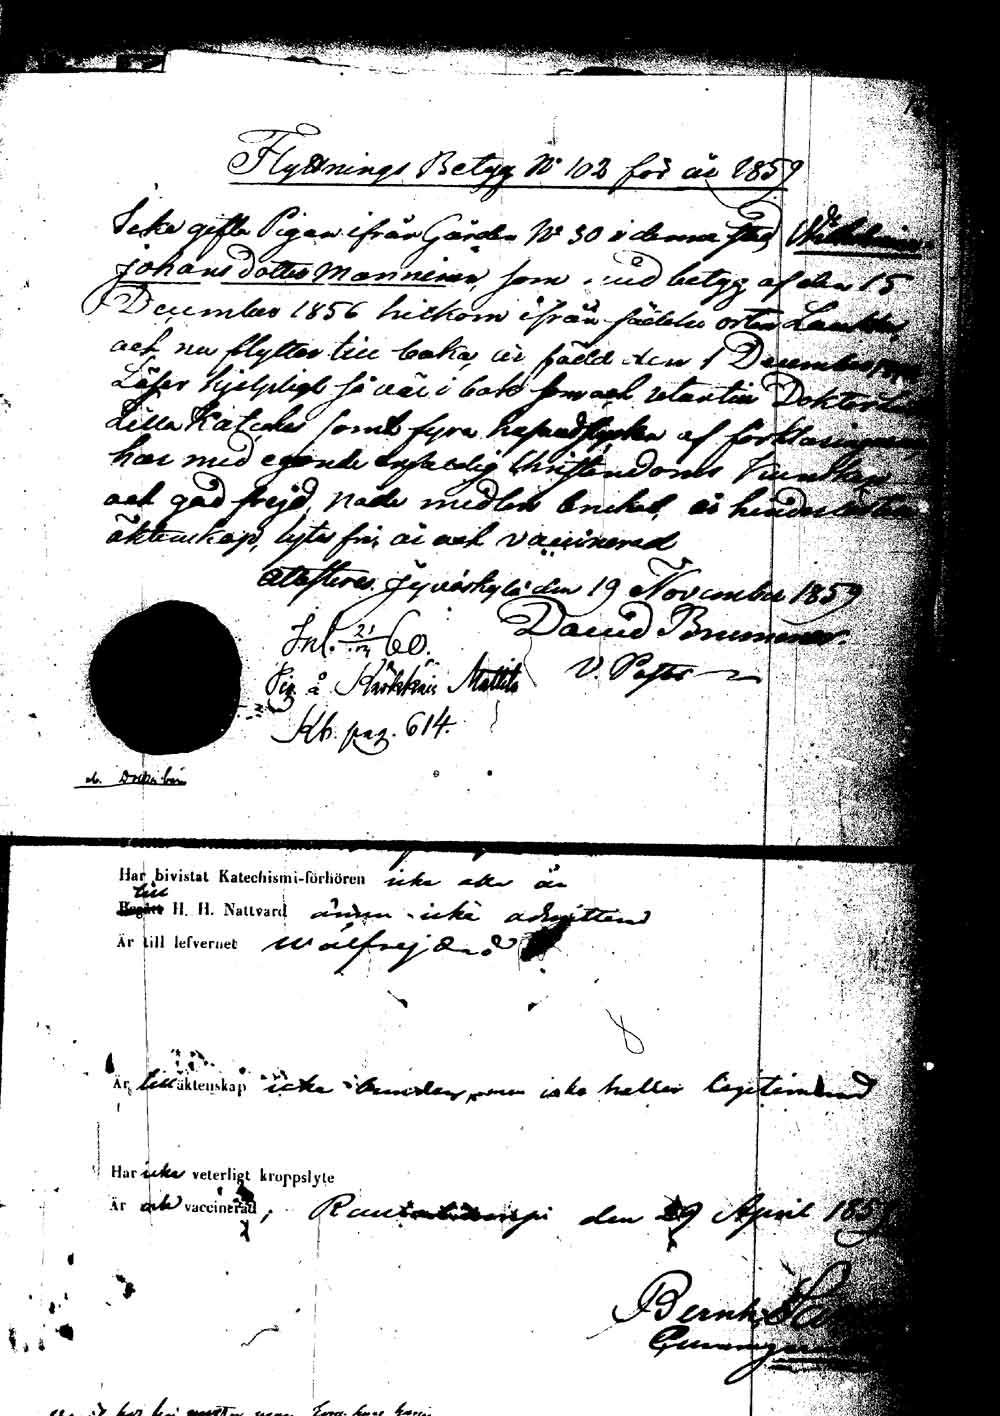 Flyttnings Betyg No 102 för år 1859
Icke gifta Pigan ifrån Gården No 30 i denna stad, Wilhelmina
Johans dotter Manninen, som med betyg af den 15
December 1856 hitkom ifrån födelse orten Laukka,
och nu flyttar till baka, är född den 1 December
Läser hjelpligt så väl i bok som ock utantill Doktor
Lilla Kateches samt fyra hufvudstycken af förklaringen
har med egande Christendoms Kunskap
och god frejd, Nade medlen brukat, är hinderlös till
äktenskap, lytes fri, är ock vaccinerad
attesteras. Jyväskylä den 19 November 1859
David Brummer.
V. Pastor
Inl. 21/ 60.
Pig. å Mattila
Kb. pag. 614.
Har bivistat Katechismi-förhören icke
till H. H. Nattvard ännu icke admitterad
Är till lefvernet wälfrejdad
Är till äktenskap icke bunden, men icke heller legitimerad
Har icke veterligt kroppslyte
Är ock vaccinerad, Rautalampi den 29 April 185
Bernh.